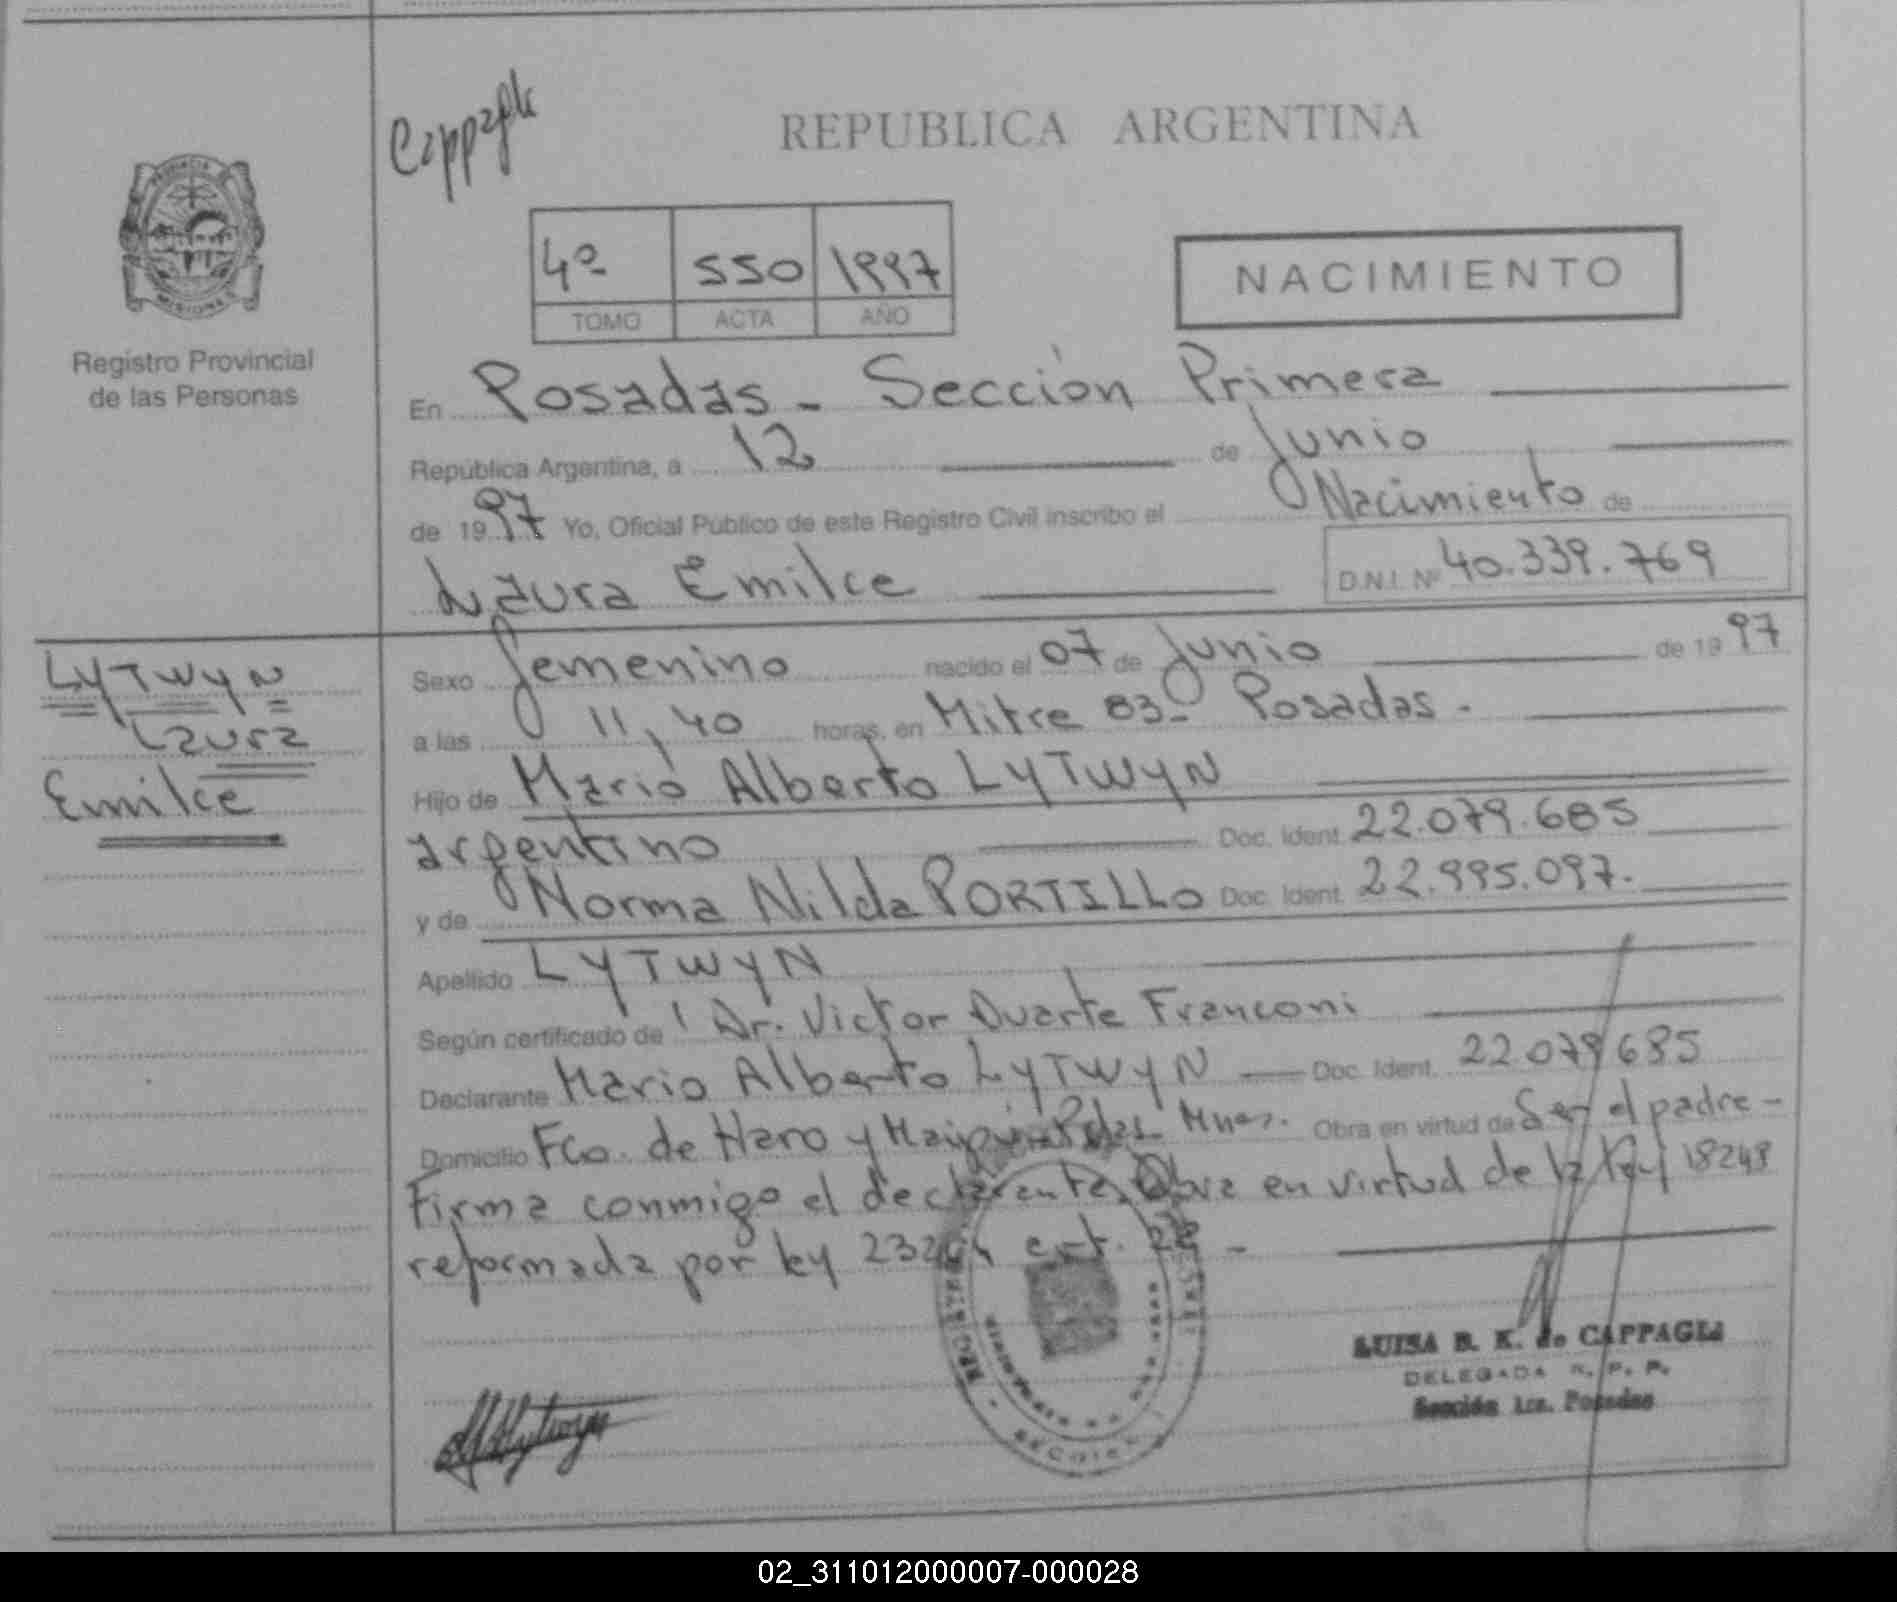 Cappagli
REPUBLICA ARGENTINA
4º 550 1997
TOMO ACTA AÑO
NACIMIENTO
PROVINCIA
MISIONES
Registro Provincial
de las Personas
En Posadas - Sección Primera
República Argentina, a 12 de Junio
de 1997 Yo, Oficial Público de este Registro Civil inscribo el Nacimiento de
Laura Emilce D.N.I. Nº 40.339.769
LYTWYN
Laura
Emilce
Sexo femenino nacido el 07 de Junio de 1997
a las 11,40 horas, en Mitre 83- Posadas.
Hijo de Mario Alberto LYTWYN
argentino Doc. Ident. 22.079.685
y de Norma Nilda PORTILLO Doc. Ident. 22.995.097.
Apellido LYTWYN
Según certificado de Dr. Victor Duarte Franconi
Declarante Mario Alberto LYTWYN Doc. Ident. 22.079685
Domicilio Fco. de Haro y Maipú Pdas. Mnes. Obra en virtud de Ser el padre-
Firma conmigo el declarante, Obra en virtud de la ley 18248
reformada por ley 23264 art.
LUISA B. K. de CAPPAGLI
DELEGADA R. P. P.
Sección 1ra. Posadas
02_311012000007-000028